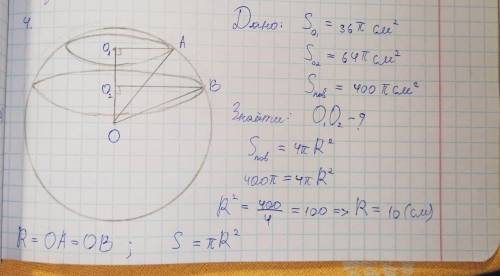 4.
Дано: S₀₁ = 36π см²
S₀₂ = 64π см²
Sпов = 400π см²
Знайти: O₁O₂ - ?
Sпов = 4πR²
400π = 4πR²
R² = 400/4 = 100 => R = 10 (см)
O₁ A
O₂ B
O
R = OA = OB ; S = πR²